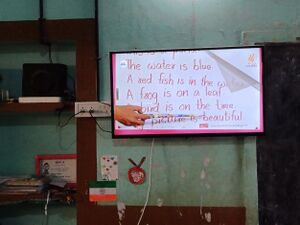 The water is blue.
A red fish is in the water
A frog is on a leaf
bird is on the tree.
picture is beautiful.